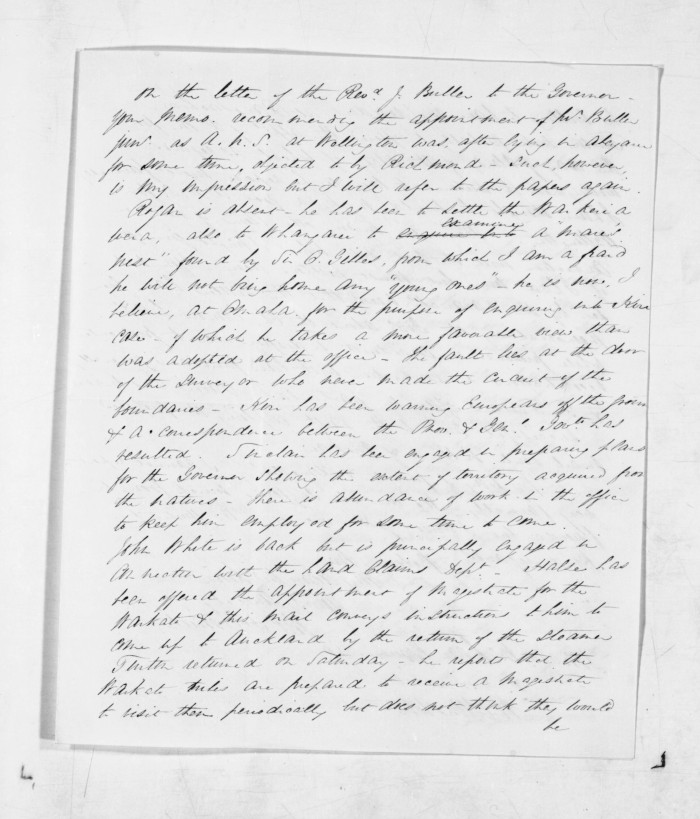 on the letter of the Revd. J. Buller to the Governor -
Your Memo. recommending the appointment of Mr. Buller
junr. as A.N.S. at Wellington was, after lying in abeyance
for some time, objected to by Richmond - Such, however,
is my impression but I will refer to the papers again.
Rogan is absent - he has been to settle the Waikeria
also to Whangarei to examine a mare's
nest" found by Sir O. Gilles, from which I am afraid
he will not bring home any "young ones" - he is now, I
believe, at Omaha for the purpose of enquiring into
case - of which he takes a more favorable view than
was adopted at the office - The fault lies at the door
of the Surveyor who never made the circuit of the
boundaries - has been warning Europeans off the ground
& a correspondence between the Prov. & Genl. Govts. has
resulted. Sinclair has been engaged in preparing plans
for the Governor showing the extent of territory acquired from
the natives - there is abundance of work in the office
to keep him employed for some time to come.
John White is back but is principally engaged in
connection with the Land Claims Dept - Halse has
been offered the appointment of Magistrate for the
Waikato & this mail conveys instructions to him to
come up to Auckland by the return of the Steamer
Turton returned on Saturday - he reports that the
Waikato tribes are prepared to receive a Magistrate
to visit them periodically but does not think they would
be